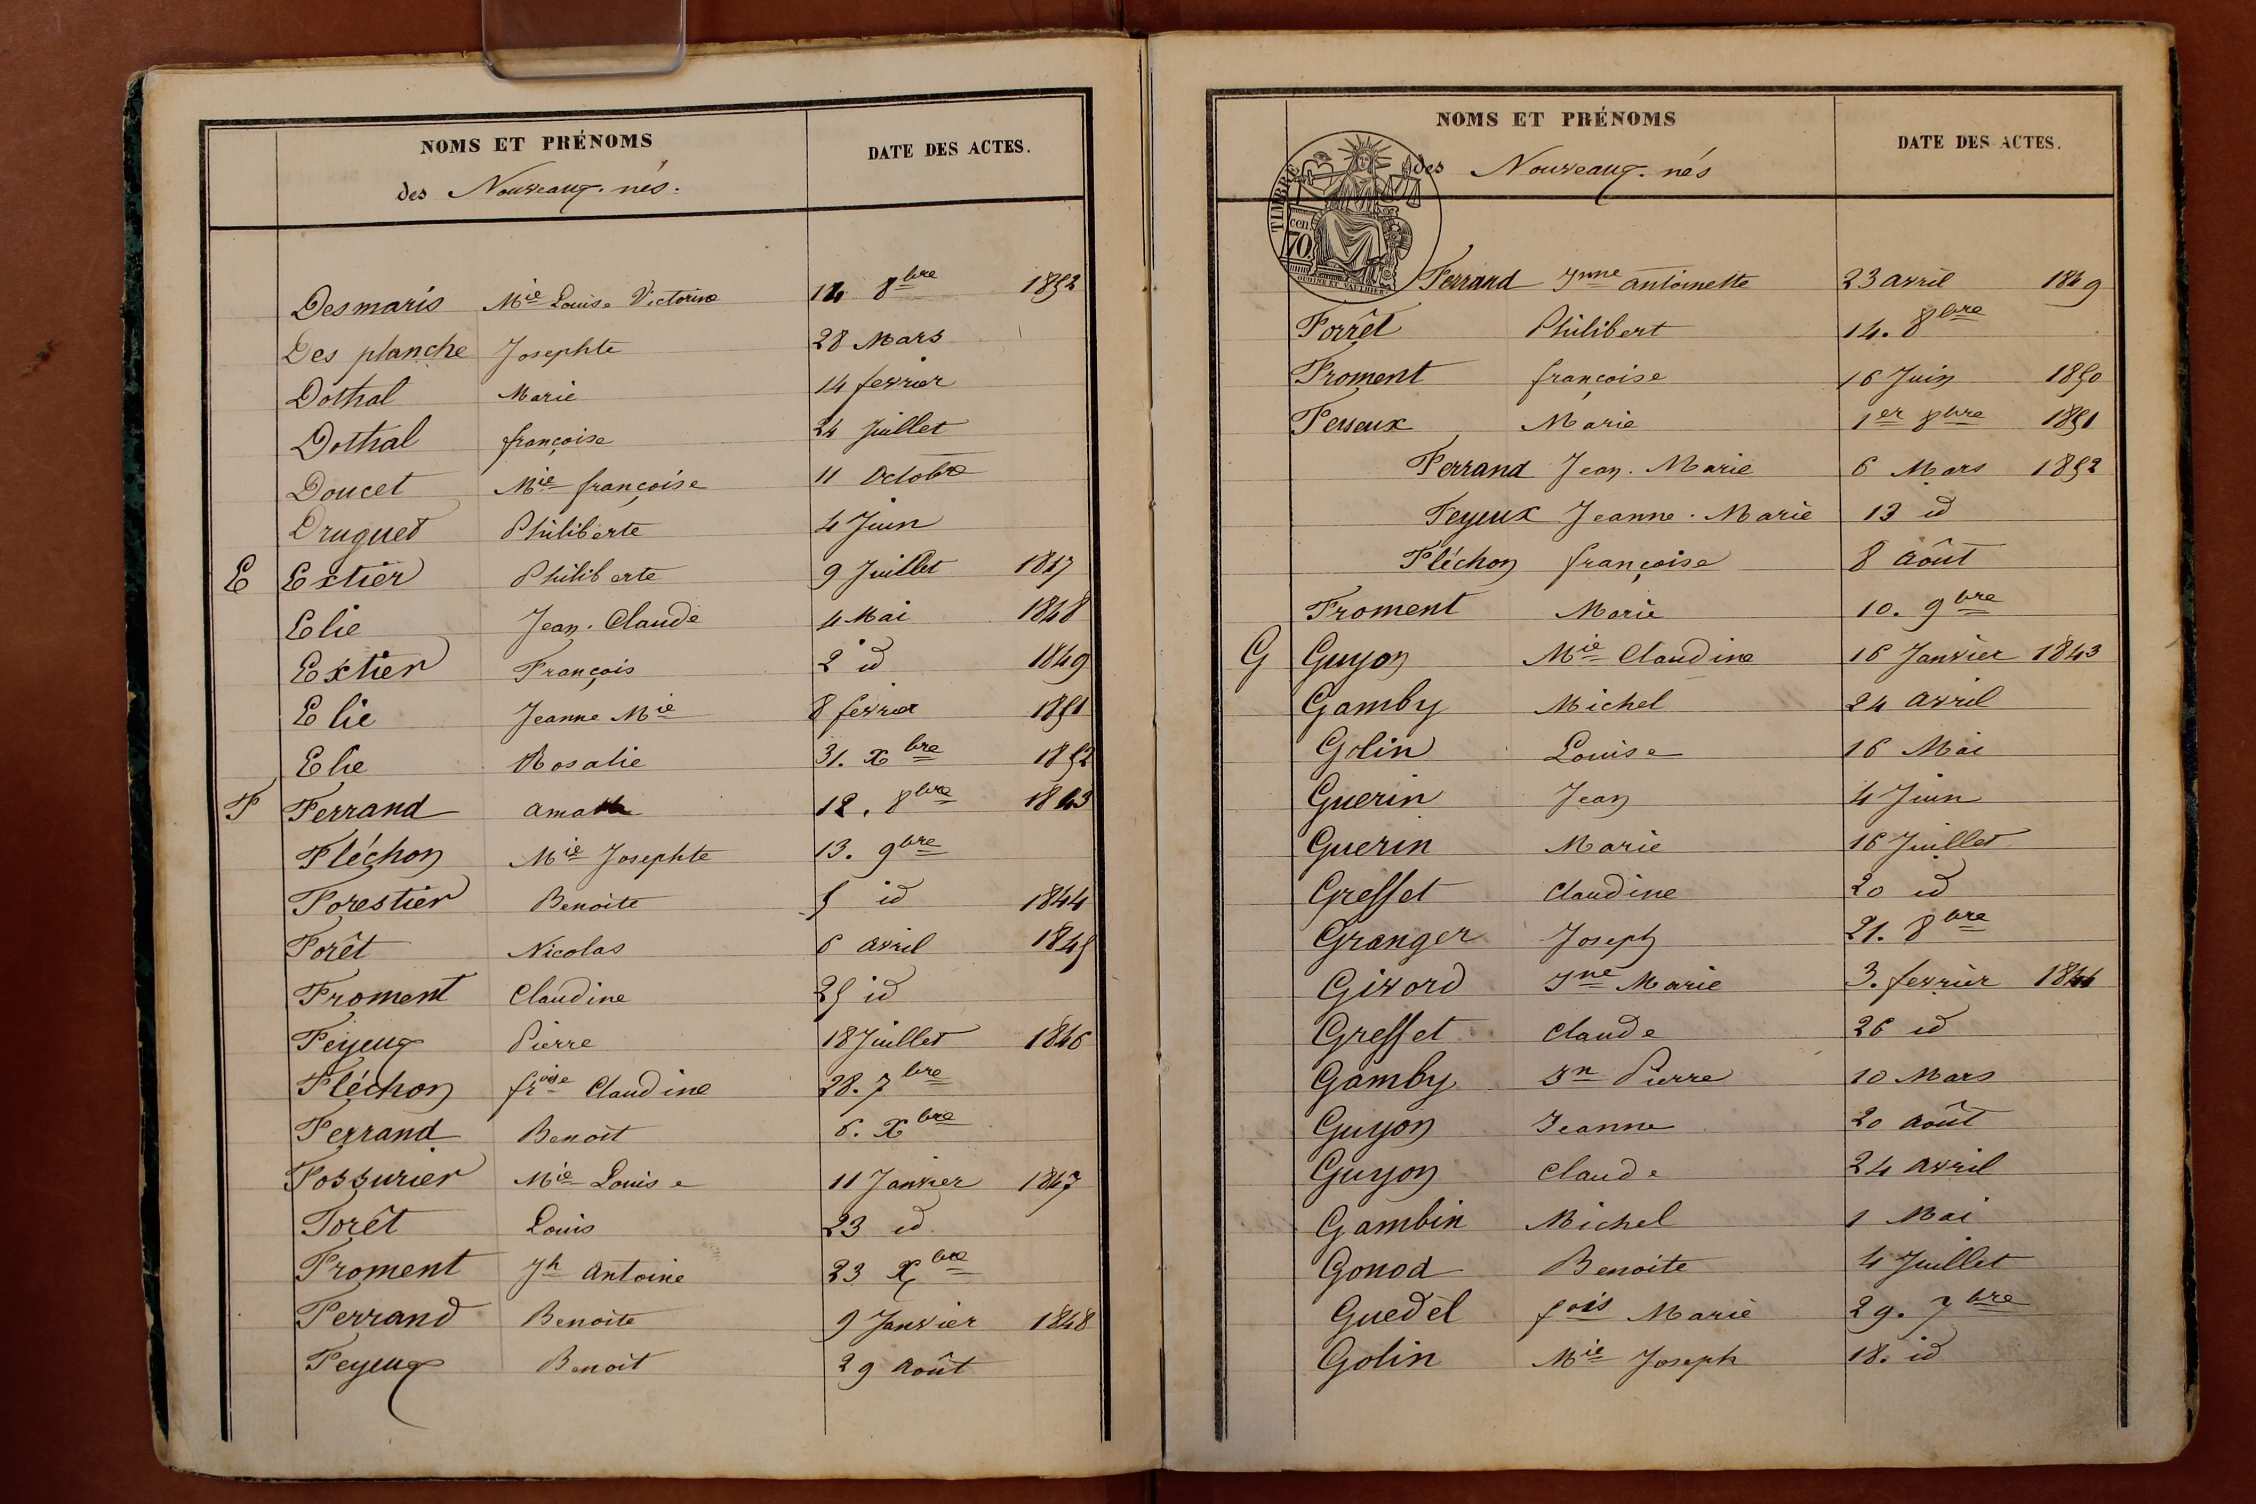 NOMS ET PRÉNOMS
DATE DES ACTES.
des Nouveaux. nés.
Desmaris Mie Louise Victorine 14 8bre 1852
Des planche Josephte 28 Mars
Dothal Marie 14 fevrier
Dothal françoise 24 Juillet
Doucet Mie françoise 11 Octobre
Druguet Philiberte 4 Juin
E Extier Philiberte 9 Juillet 1847
Elie Jean. Claude 4 Mai 1848
Extier François 2 id 1849
Elie Jeanne Mie 8 fevrier 1851
Elie Rosalie 31. xbre 1852
F Ferrand 12. 8bre 1843
Fléchon Mie Josephte 13. 9bre
Forestier Benoite 5 id 1844
Forêt Nicolas 6 avril 1845
Froment Claudine 25 id
Feyeux Pierre 18 Juillet 1846
Fléchon froise Claudine 28. 7bre
Ferrand Benoit 6. Xbre
Fossurier Mie Louise 11 Janvier 1847
Forêt Louis 23 id
Froment Jh Antoine 23 Xbre
Ferrand Benoite 9 Janvier 1848
Feyeux Benoit 29 Août
NOMS ET PRÉNOMS
DATE DES ACTES.
des Nouveaux. nés
TIMBRE
70 cen.
Ferrand Jnne Antoinette 23 avril 1849
Forrêt Philibert 14. 8bre
Froment françoise 16 Juin 1850
Marie 1er 8bre 1851
Ferrand Jean. Marie 6 Mars 1852
Feyeux Jeanne. Marie 13 id
Fléchon françoise 8 Août
Froment Marie 10. 9bre
G Guyon Mie Claudine 16 Janvier 1843
Gamby Michel 24 Avril
Golin Louise 16 Mai
Guerin Jean 4 Juin
Guerin Marie 16 Juillet
Gresset Claudine 20 id
Granger Joseph 21. 8bre
Givord Jne Marie 3. fevrier 1844
Gresset Claude 26 id
Gamby Jn Pierre 10 Mars
Guyon Jeanne 20 Août
Guyon Claude 24 Avril
Gambin Michel 1 Mai
Gonod Benoite 4 Juillet
Guedel fois Marie 29. 7bre
Golin Mie Joseph 18. id